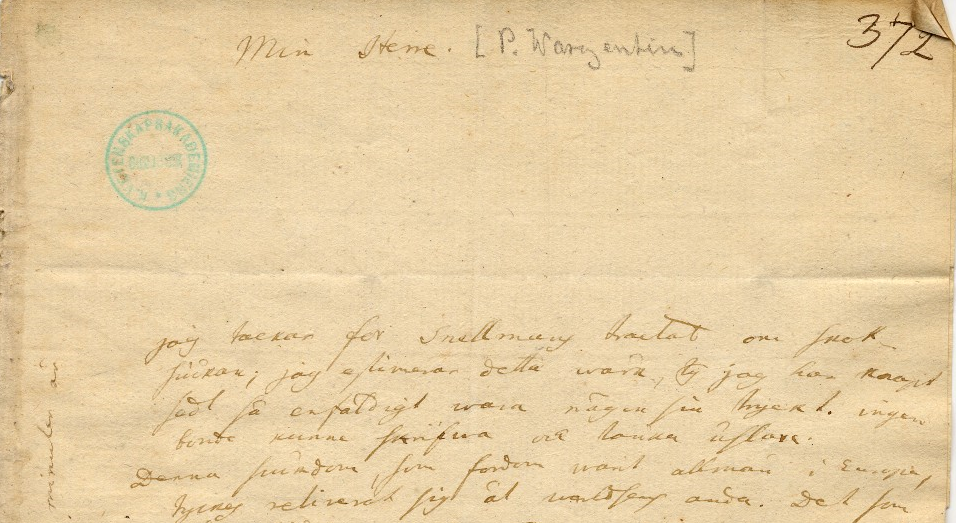 Min Herre. [P. Wargentin]
372
K. VETENSKAPSAKADEMIENS
jag tackar för Snellmans tractat om
siukan; jag estimerar detta wärk, ty jag har knapt
sedt så enfaldigt wara någonsin tryckt. ingen
bonde kunne skrifwa och tänka
Denna siukdom som fordom warit allmän i Europa,
tyckes retirerat sig åt Det som
minuter är